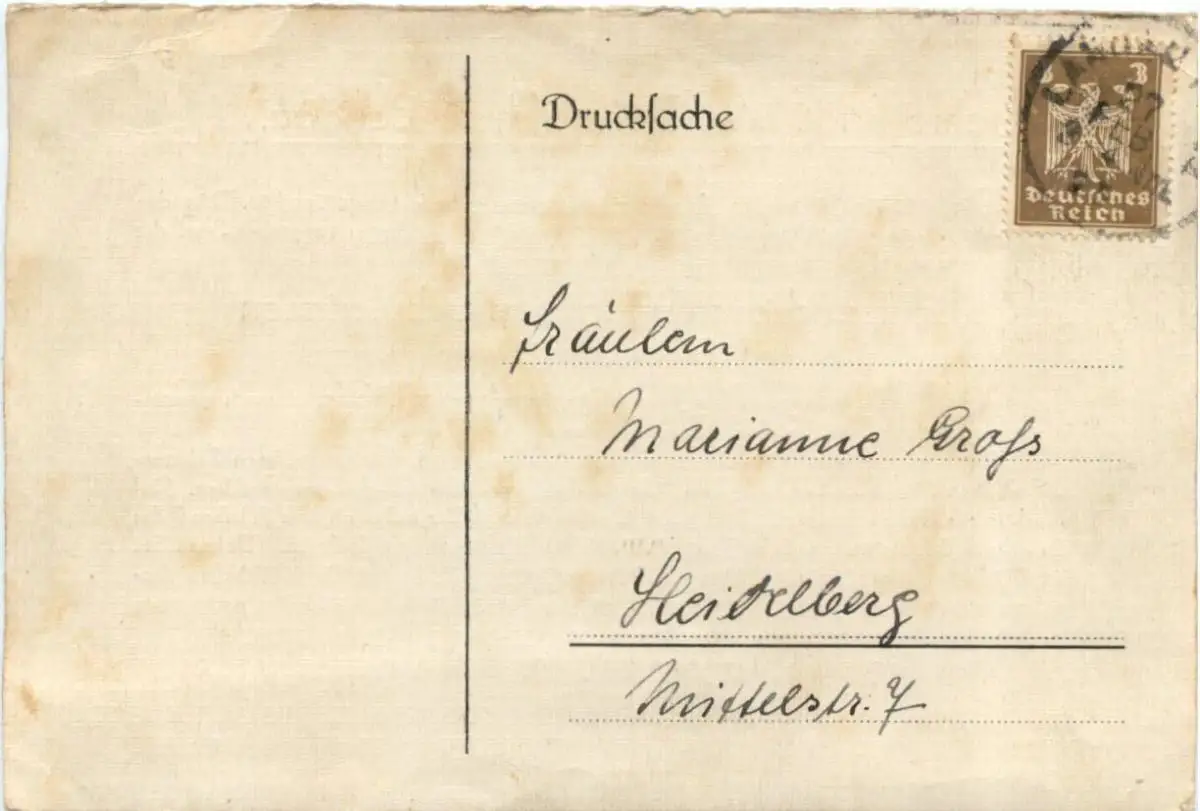 Drucksache
3 3
Deutsches
Reich
Fräulein
Marianne Groß
Heidelberg
Mittelstr. 7